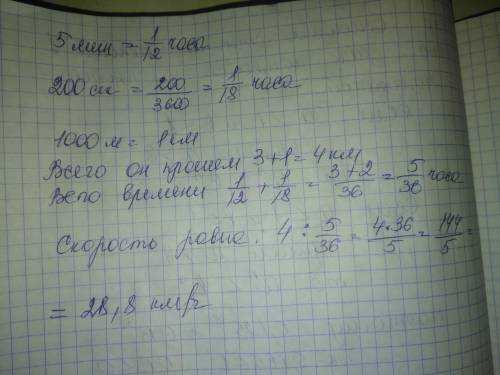 5 мин = 1/12 часа
200 сек = 200/3600 = 1/18 часа
1000 м = 1 км
Всего он прошел 3+1 = 4 км
Всего времени 1/12 + 1/18 = 3+2/36 = 5/36 часа
Скорость равна: 4 : 5/36 = 4*36/5 = 144/5 =
= 28,8 км/ч